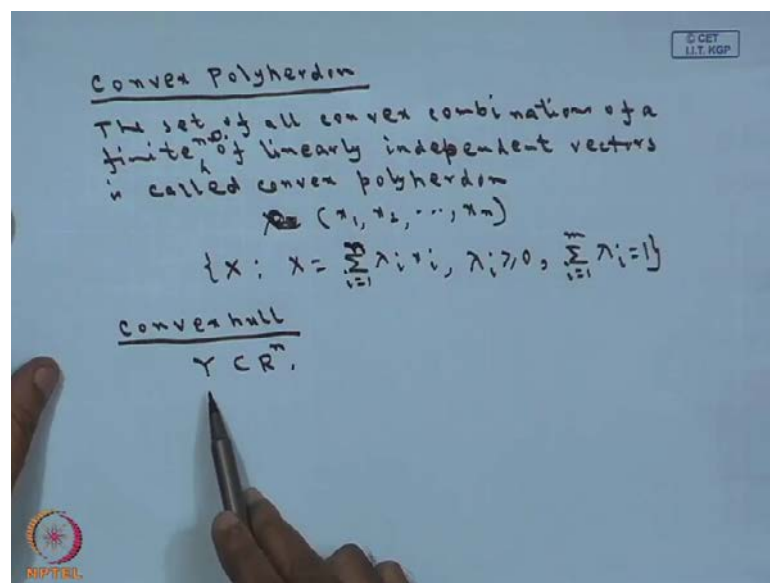 © CET
I.I.T. KGP
Convex Polyherdon
The set of all convex combinations of a
finite no. of linearly independent vectors
is called convex polyherdon
(x₁, x₂, ..., xₙ)
{X : X = ∑ᵢ₌₁ᵐ λᵢ xᵢ, λᵢ ≥ 0, ∑ᵢ₌₁ᵐ λᵢ = 1}
Convex hull
Y ⊂ Rⁿ.
NPTEL